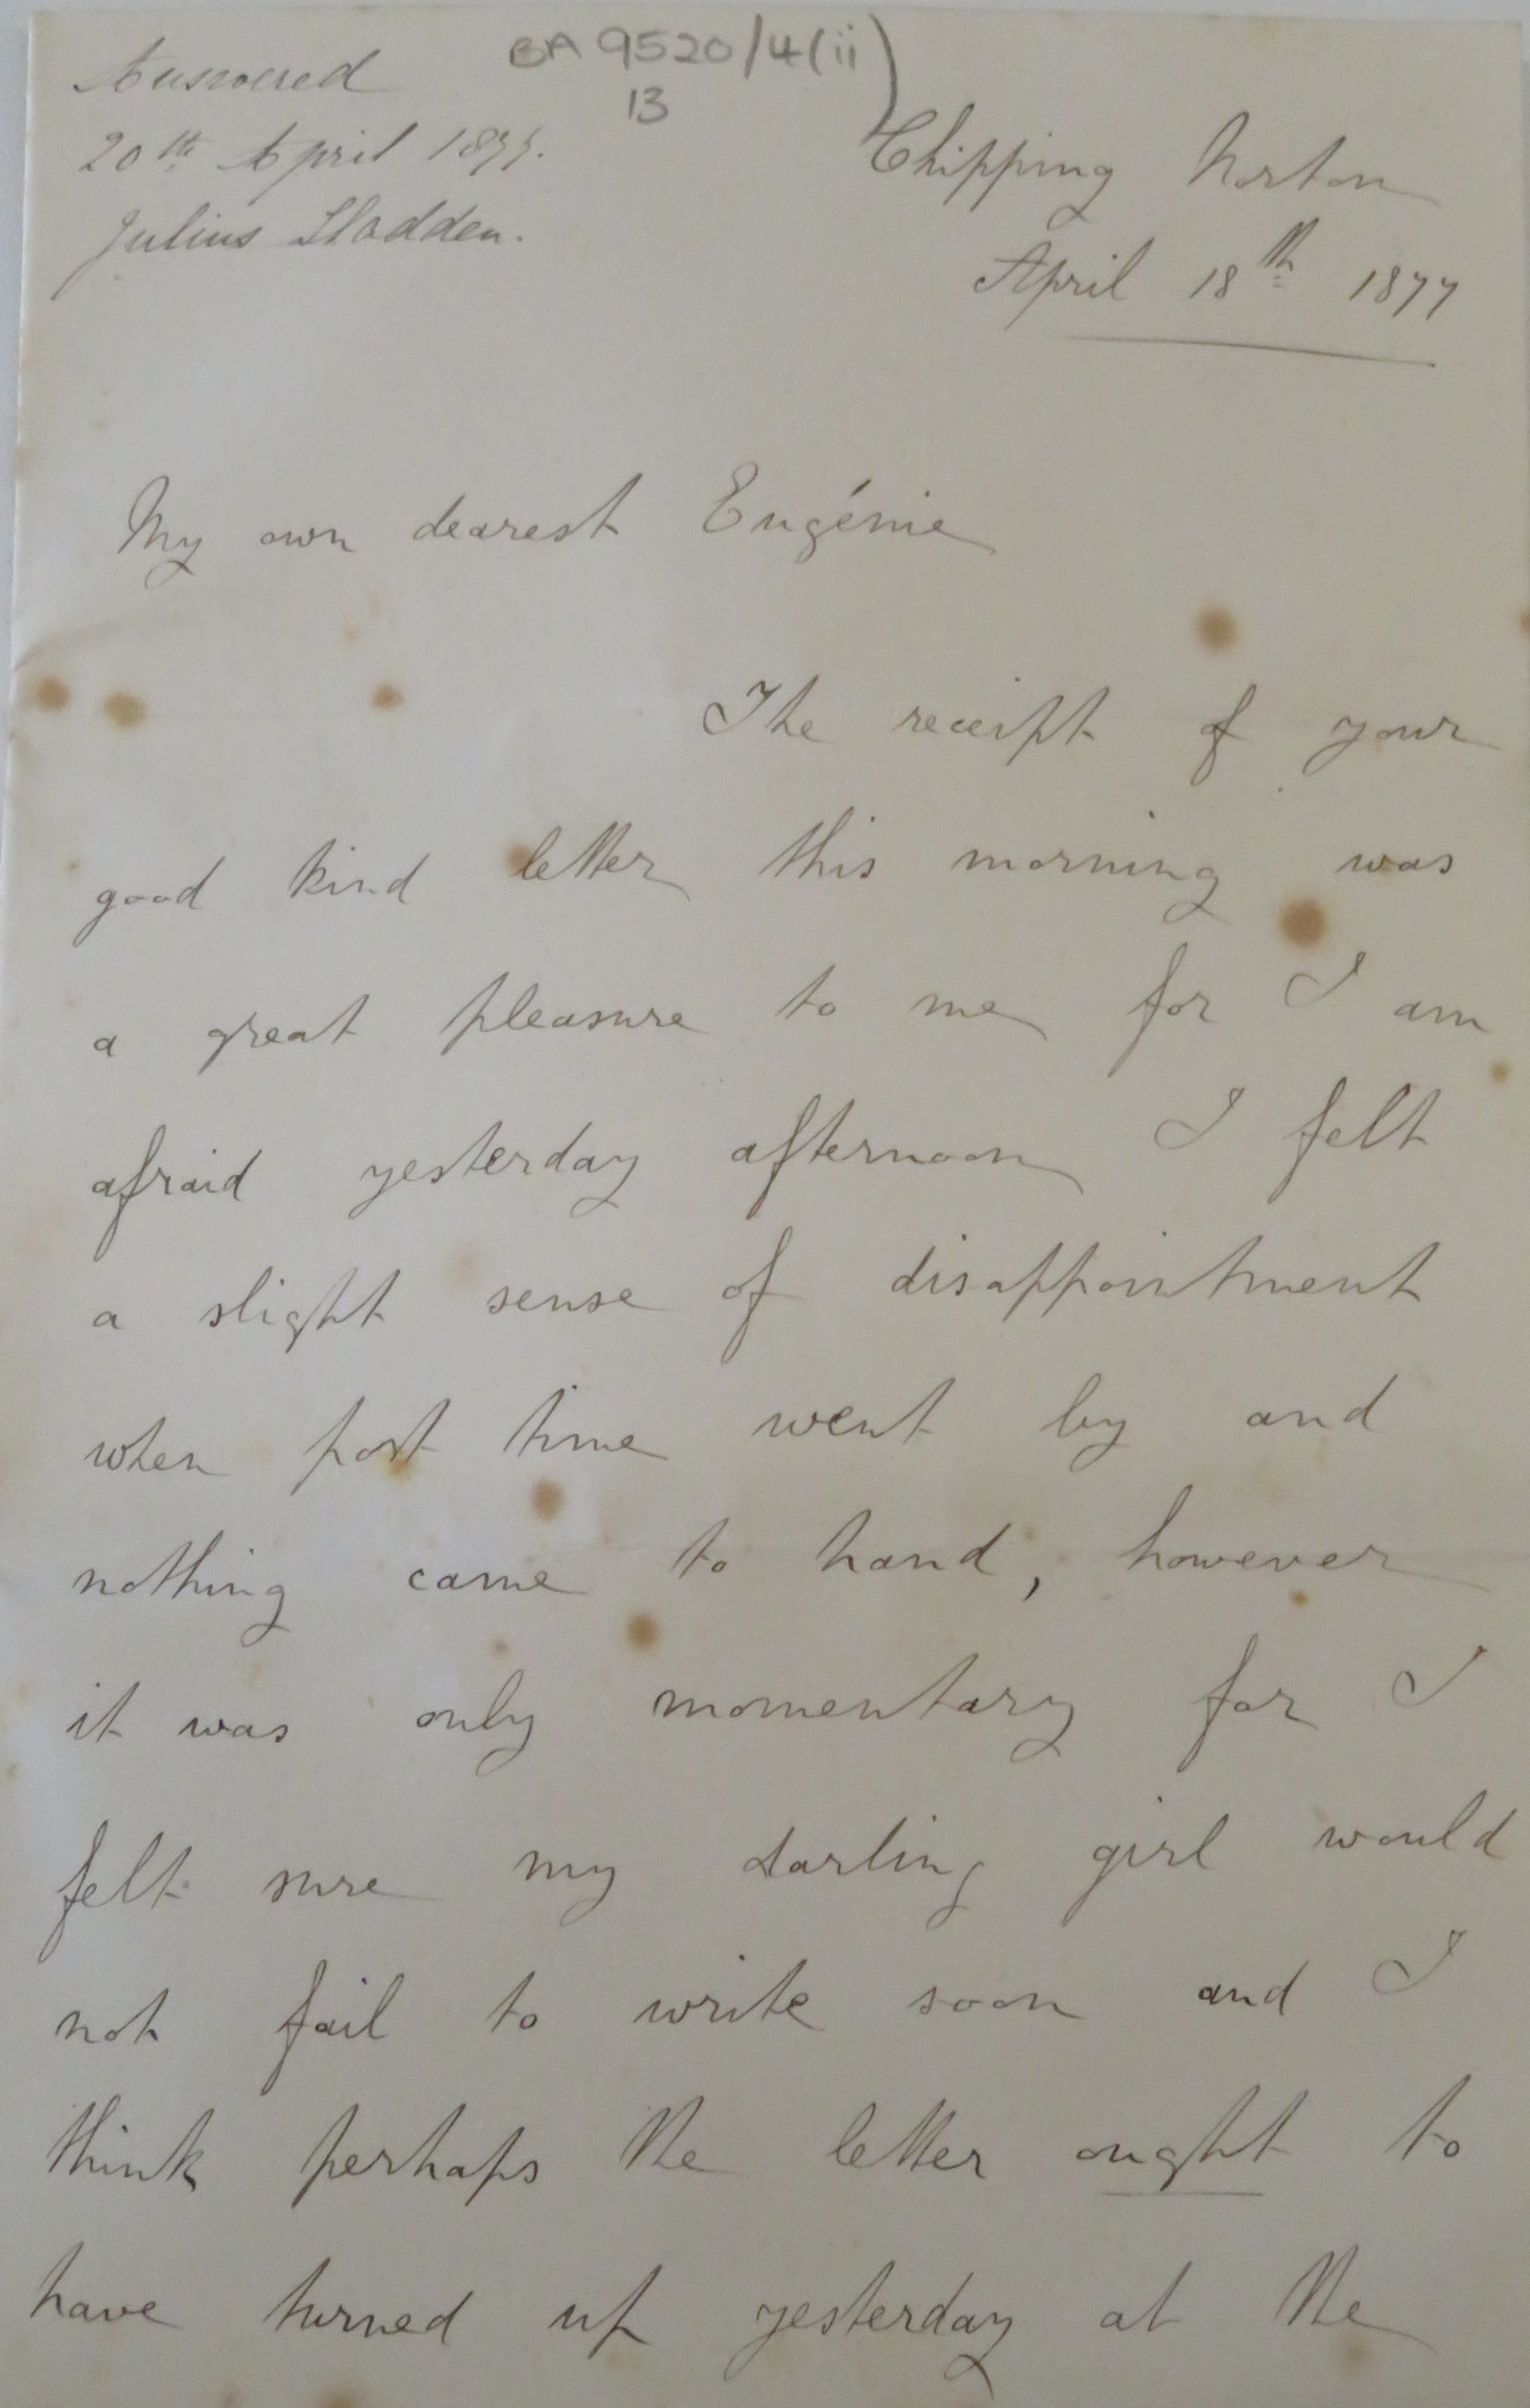 BA 9520/4(ii)
13
Answered
20th April 1877.
Julius Sladden.
Chipping Norton
April 18th 1877
My own dearest Eugénie
The receipt of your
good kind letter this morning was
a great pleasure to me for I am
afraid yesterday afternoon I felt
a slight sense of disappointment
when post time went by and
nothing came to hand, however
it was only momentary for I
felt sure my darling girl would
not fail to write soon and I
think perhaps the letter ought to
have turned up yesterday at the